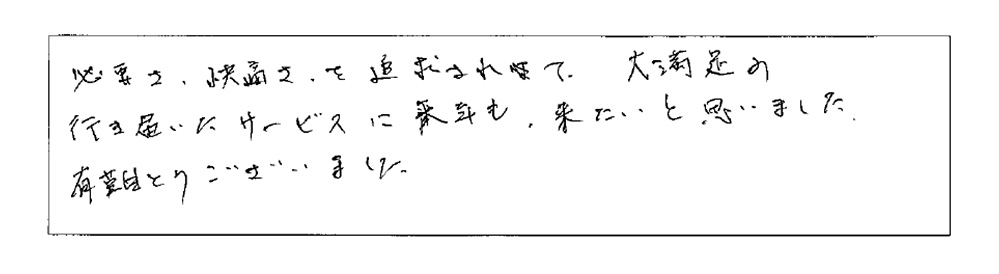 必要さ、快適さ、を追求されまて、大満足の
行き届いたサービスに来年も、来たいと思いました。
有難とうございました。